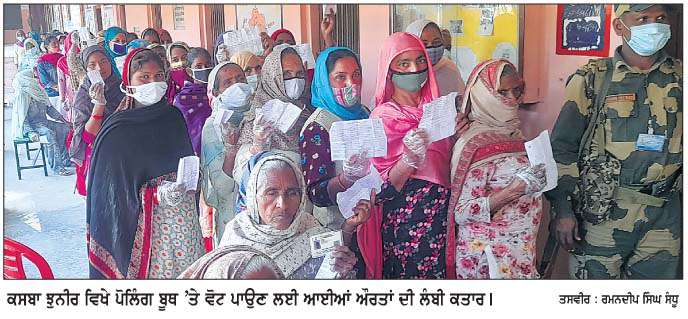 ਕਸਬਾ ਝੁਨੀਰ ਵਿਖੇ ਪੋਲਿੰਗ ਬੂਥ 'ਤੇ ਵੋਟ ਪਾਉਣ ਲਈ ਆਈਆਂ ਔਰਤਾਂ ਦੀ ਲੰਬੀ ਕਤਾਰ। ਤਸਵੀਰ : ਰਮਨਦੀਪ ਸਿੰਘ ਸੰਧੂ